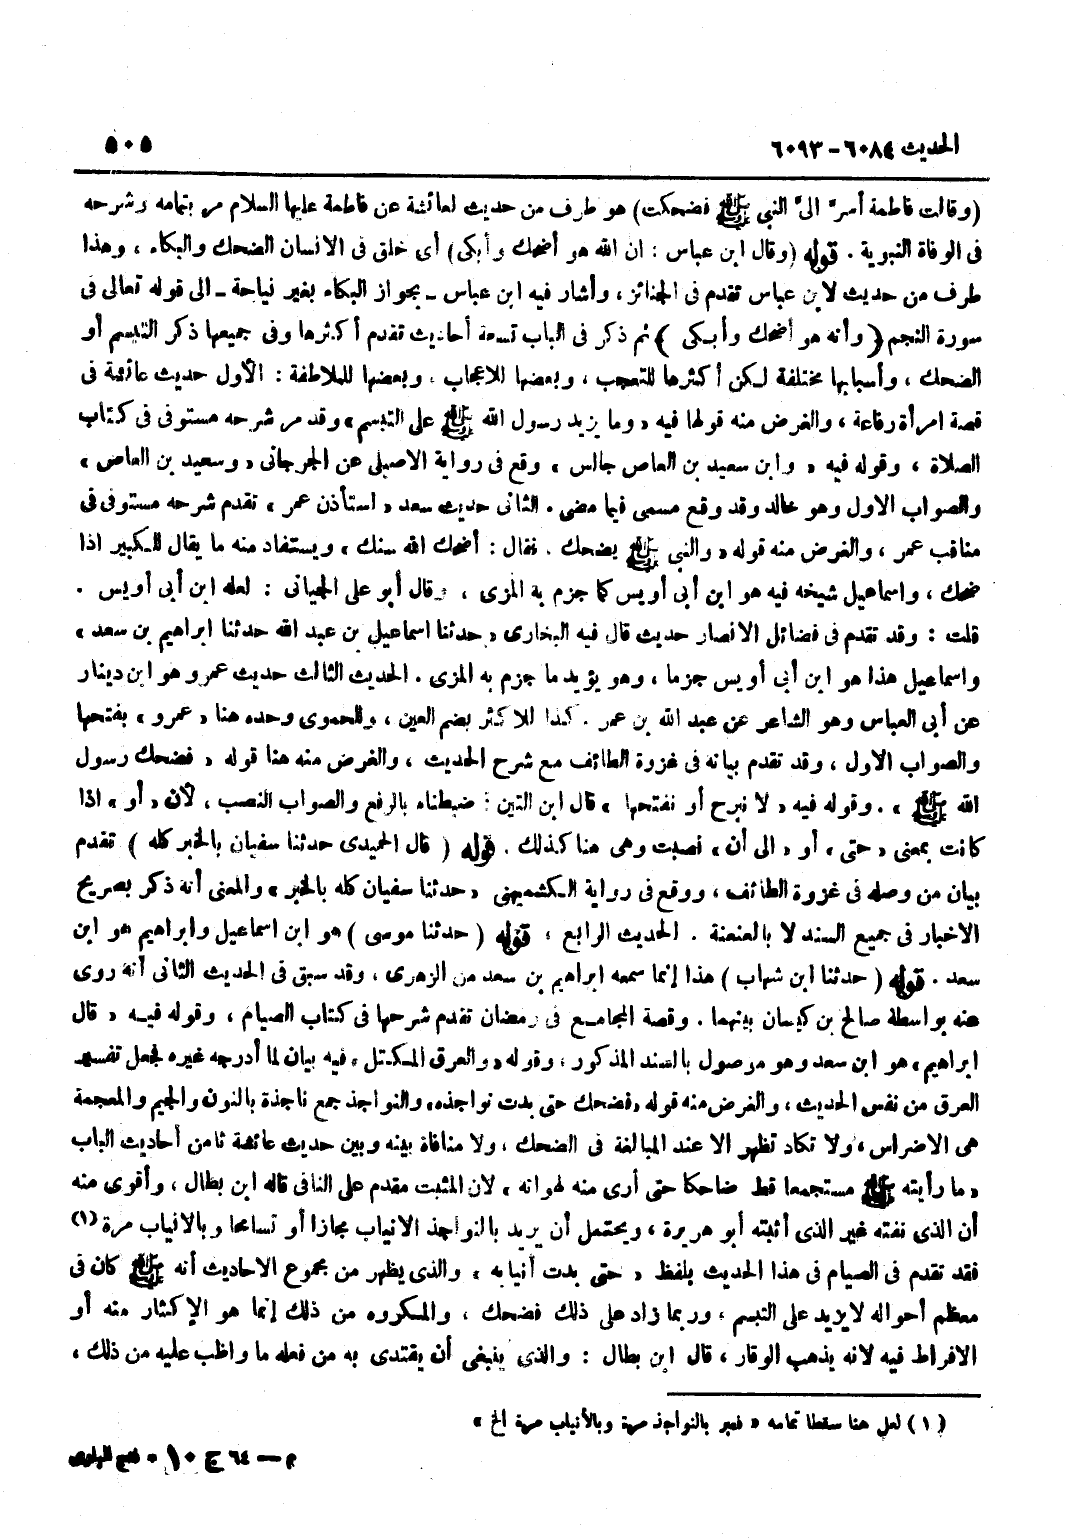 الحديث ٦٠٨٤ – ٦٠٩٣ ٥٠٥
(وقالت فاطمة أسرّ الىّ النبي ﷺ فضحكت) هو طرف من حديث لعائشة عن فاطمة عليها السلام مر بتمامه وشرحه
فى الوفاة النبوية . قوله (وقال ابن عباس : ان الله هو أضحك وأبكى) أى خلق فى الانسان الضحك والبكاء ، وهذا
طرف من حديث لابن عباس تقدم فى الجنائز ، وأشار فيه ابن عباس ـ بجواز البكاء بغير نياحة ـ الى قوله تعالى فى
سورة النجم ( وأنه هو أضحك وأبكى ) ثم ذكر فى الباب تسعة أحاديث تقدم أكثرها وفى جميعها ذكر التبسم أو
الضحك ، وأسبابها مختلفة لكن أكثرها للتعجب ، وبعضها للاعجاب ، وبعضها للملاطفة : الأول حديث عائشة فى
قصة امرأة رفاعة ، والغرض منه قولها فيه « وما يزيد رسول الله ﷺ على التبسم » وقد مر شرحه مستوفى فى كتاب
الصلاة ، وقوله فيه « وابن سعيد بن العاص جالس » وقع فى رواية الاصيلى عن الجرجانى « وسعيد بن العاص »
والصواب الاول وهو خالد وقد وقع مسمى فيما مضى . الثانى حديث سعد « استأذن عمر » تقدم شرحه مستوفى فى
مناقب عمر ، والغرض منه قوله « والنبي ﷺ يضحك . فقال : أضحك الله سنك » ويستفاد منه ما يقال للكبير اذا
ضحك ، واسماعيل شيخه فيه هو ابن أبى أويس كما جزم به المزى ، وقال أبو على الجيانى : لعله ابن أبى أويس .
قلت : وقد تقدم فى فضائل الانصار حديث قال فيه البخارى « حدثنا اسماعيل بن عبد الله حدثنا ابراهيم بن سعد »
واسماعيل هذا هو ابن أبى أويس جزما ، وهو يؤيد ما جزم به المزى . الحديث الثالث حديث عمرو هو ابن دينار
عن أبى العباس وهو الشاعر عن عبد الله بن عمر . كذا للاكثر بضم العين ، وللحموى وحده هنا « عمرو » بفتحها
والصواب الاول ، وقد تقدم بيانه فى غزوة الطائف مع شرح الحديث ، والغرض منه هنا قوله « فضحك رسول
الله ﷺ » . وقوله فيه « لا نبرح أو نفتحها » قال ابن التين : ضبطناه بالرفع والصواب النصب ، لأن « أو » اذا
كانت بمعنى « حتى » أو « الى أن » نصبت وهى هنا كذلك . قوله ( قال الحميدى حدثنا سفيان بالخبر كله ) تقدم
بيان من وصله فى غزوة الطائف ، ووقع فى رواية الكشميهنى « حدثنا سفيان كله بالخبر » والمعنى أنه ذكر بصريح
الاخبار فى جميع السند لا بالعنعنة . الحديث الرابع ، قوله ( حدثنا موسى ) هو ابن اسماعيل وابراهيم هو ابن
سعد . قوله ( حدثنا ابن شهاب ) هذا إنما سمعه ابراهيم بن سعد من الزهرى ، وقد سبق فى الحديث الثانى أنه روى
عنه بواسطة صالح بن كيسان بينهما . وقصة المجامع فى رمضان تقدم شرحها فى كتاب الصيام ، وقوله فيه « قال
ابراهيم » هو ابن سعد وهو موصول بالسند المذكور ، وقوله « والعرق المكتل » فيه بيان لما أدرجه غيره فجعل تفسير
العرق من نفس الحديث ، والغرض منه قوله « فضحك حتى بدت نواجذه » والنواجذ جمع ناجذة بالنون والجيم والمعجمة
هى الاضراس ، ولا تكاد تظهر الا عند المبالغة فى الضحك ، ولا منافاة بينه وبين حديث عائشة ثامن أحاديث الباب
« ما رأيته ﷺ مستجمعا قط ضاحكا حتى أرى منه لهواته » لان المثبت مقدم على النافى قاله ابن بطال ، وأقوى منه
أن الذى نفته غير الذى أثبته أبو هريرة ، ويحتمل أن يريد بالنواجذ الانياب مجازا أو تسامحا وبالانياب مرة (١)
فقد تقدم فى الصيام فى هذا الحديث بلفظ « حتى بدت أنيابه » والذى يظهر من مجموع الاحاديث أنه ﷺ كان فى
معظم أحواله لا يزيد على التبسم ، وربما زاد على ذلك فضحك ، والمكروه من ذلك إنما هو الإكثار منه أو
الافراط فيه لانه يذهب الوقار ، قال ابن بطال : والذي ينبغى أن يقتدى به من فعله ما واظب عليه من ذلك ،
(١) لعل هنا سقطا تمامه « فعبر بالنواجذ مرة وبالأنياب مرة الخ »
م — ٦٤ ج ١٠ • فتح الباري